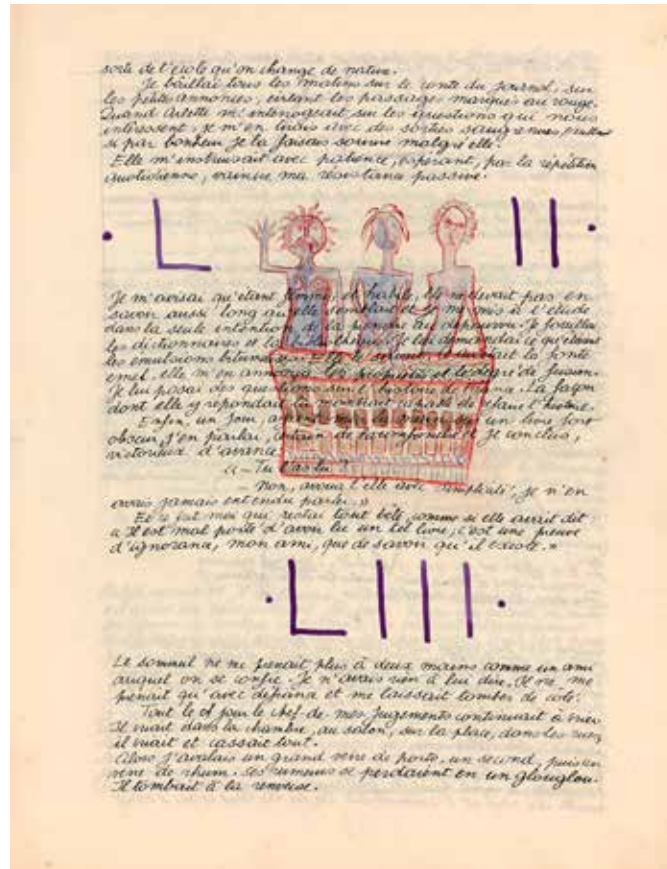 sorte de l'école qu'on change de nature.
Je bâillai tous les matins sur le conte du journal, sur
les petites annonces, évitant les passages marqués au rouge.
Quand Arlette m'interrogeait sur les questions qui nous
intéressent, je m'en tirais avec des sorties saugrenues,
si par bonheur je la faisais sourire malgré elle.
Elle m'instruisait avec patience, espérant, par la répétition
quotidienne, vaincre ma résistance passive.
· L II ·
Je m'avisai qu'étant femme, et habile, elle ne devait pas en
savoir aussi long qu'elle semblait et je me mis à l'étude
dans la seule intention de la prendre au dépourvu. Je fouillai
les dictionnaires et la bibliothèque. Je lui demandai ce qu'étaient
les émulsions la fonte
elle m'en annonça les propriétés et le degré de fusion.
Je lui posai des questions sur l'histoire de La façon
dont elle y répondait la montrait capable de l'histoire.
Enfin, un jour, un livre fort
obscur, j'en parlai, certain de triompher et je conclus,
victorieux d'avance
« – Tu l'as lu ?
– Non, avoua-t'elle avec simplicité, je n'en
avais jamais entendu parler. »
Et ce fut moi qui restai tout bête, comme si elle avait dit :
« Il est mal porté d'avoir lu un tel livre, c'est une preuve
d'ignorance, mon ami, que de savoir qu'il existe. »
· LIII ·
Le sommeil ne me prenait plus à deux mains comme un ami
auquel on se confie. Je n'avais rien à lui dire, il ne me
prenait qu'avec défiance et me laissait tomber de côté.
Tout le jour le chef de mes jugements continuait à crier
Il criait dans la chambre, au salon, sur la place, dans les rues,
il criait et cassait tout.
Alors j'avalais un grand verre de porto, un second, puis un
verre de rhum. Ses rumeurs se perdaient en un glouglou.
Il tombait à la renverse.